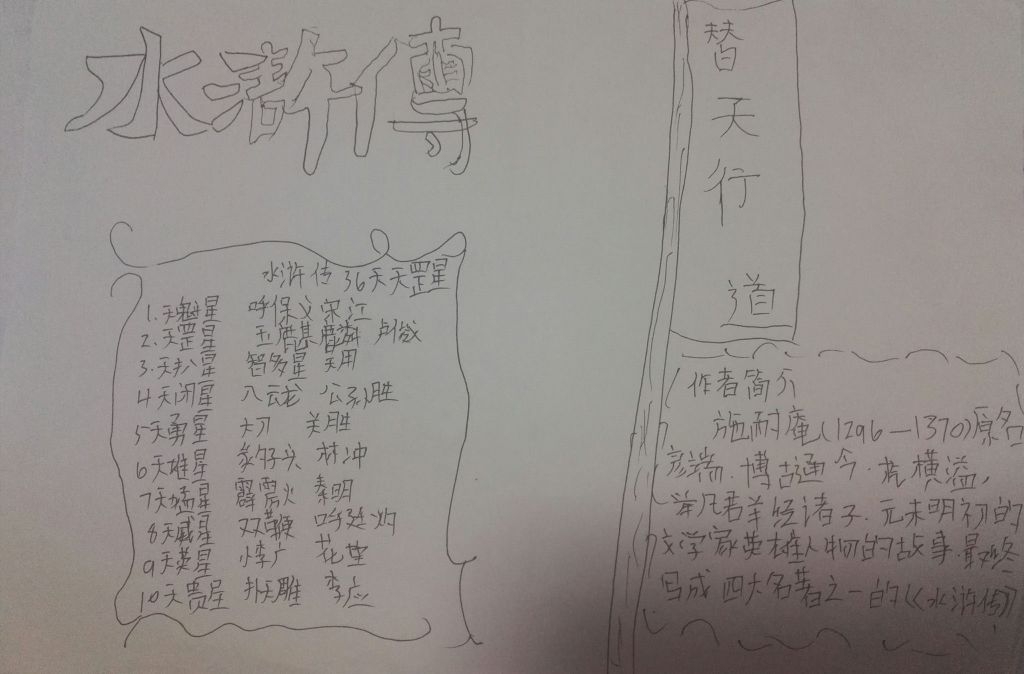 水滸傳
水浒传 36天天罡星
1.天魁星 呼保义宋江
2.天罡星 玉麒麟 卢俊
3.天 星 智多星 吴用
4天闲星 入云龙 公孙胜
5天勇星 大刀 关胜
6天雄星 豹子头 林冲
7天猛星 霹雳火 秦明
8天威星 双鞭 呼延灼
9天英星 小李广 花荣
10天贵星 扑天雕 李应
替
天
行
道
作者简介
施耐庵(1296—1370)原名
彦端.博古通今. 横溢,
举凡群经诸子.元末明初的
文学家英雄人物的故事.最终
写成四大名著之一的《水浒传》